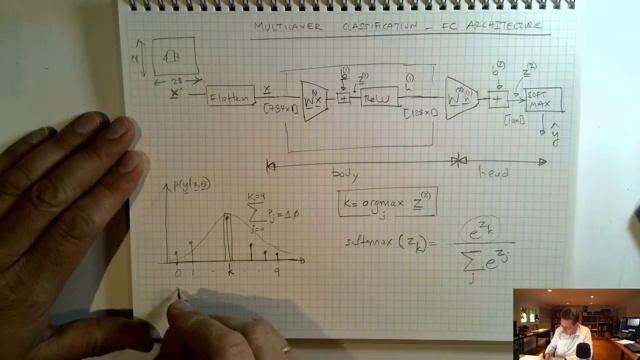 MULTILAYER CLASSIFICATION - FC ARCHITECTURE
28
28
x
Flatten
x
[784x1]
W⁽¹⁾x
b⁽¹⁾
+
z⁽¹⁾
ReLU
h⁽¹⁾
[128x1]
W⁽²⁾h⁽¹⁾
b⁽²⁾
+
z⁽²⁾
[10x1]
SOFT
MAX
ŷ
body
head
p(y|x,θ)
K=9
Σ Pj = 1.0
j=0
0 1 k 9
K = argmax z⁽²⁾
j
softmax (Zk) = e^Zk
Σ e^Zj
j